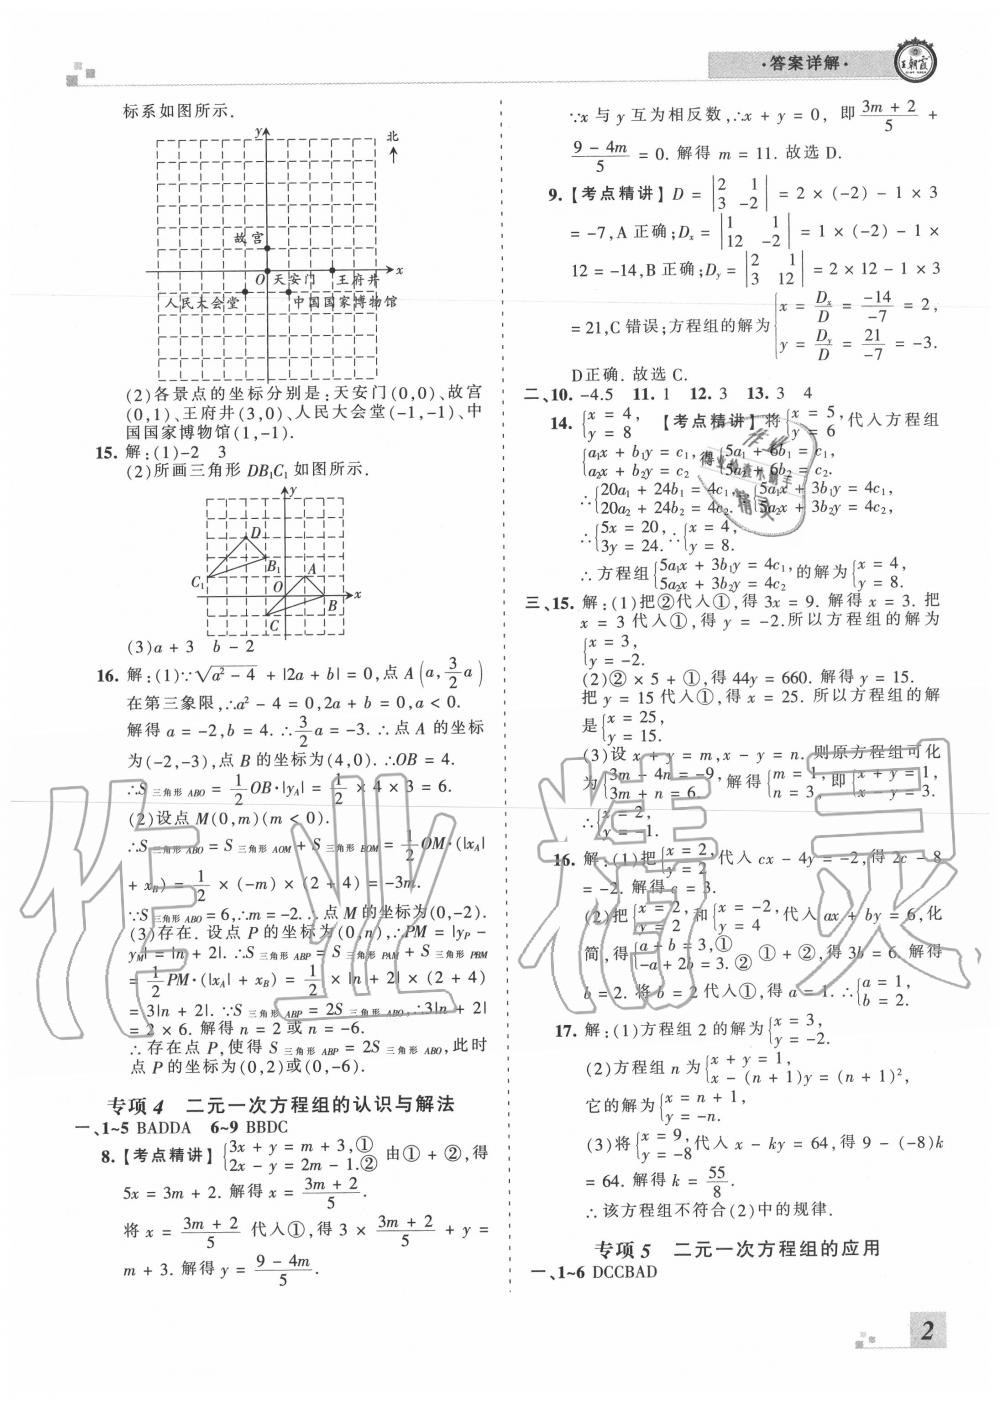 ·答案详解·
王朝霞
标系如图所示.
y
北
故宫
O 天安门 王府井 x
人民大会堂 中国国家博物馆
(2)各景点的坐标分别是:天安门(0,0)、故宫
(0,1)、王府井(3,0)、人民大会堂(-1,-1)、中
国国家博物馆(1,-1).
15. 解:(1)-2 3
(2)所画三角形 DB₁C₁ 如图所示.
y
D
B₁
C₁
A
O
B x
C
(3)a + 3 b - 2
16. 解:(1)∵√(a² - 4) + |2a + b| = 0,点 A(a, 3/2 a)
在第三象限,∴a² - 4 = 0,2a + b = 0,a < 0.
解得 a = -2,b = 4. ∴ 3/2 a = -3. ∴点 A 的坐标
为(-2,-3),点 B 的坐标为(4,0). ∴OB = 4.
∴S三角形ABO = 1/2 OB·|yA| = 1/2 × 4 × 3 = 6.
(2)设点 M(0,m)(m < 0).
∴S三角形ABO = S三角形AOM + S三角形BOM = 1/2 OM·(|xA|
+ xB) = 1/2 × (-m) × (2 + 4) = -3m.
∵S三角形ABO = 6,∴m = -2. ∴点 M 的坐标为(0,-2).
(3)存在. 设点 P 的坐标为(0,n),∴PM = |yP -
yM| = |n + 2|. ∴S三角形ABP = S三角形PAM + S三角形PBM
= 1/2 PM·(|xA| + xB) = 1/2 × |n + 2| × (2 + 4)
= 3|n + 2|. ∵S三角形ABP = 2S三角形ABO,∴3|n + 2|
= 2 × 6. 解得 n = 2 或 n = -6.
∴存在点 P,使得 S三角形ABP = 2S三角形ABO,此时
点 P 的坐标为(0,2)或(0,-6).
专项 4 二元一次方程组的认识与解法
一、1~5 BADDA 6~9 BBDC
8.【考点精讲】{3x + y = m + 3,① 2x - y = 2m - 1.② 由① + ②,得
5x = 3m + 2. 解得 x = (3m + 2)/5.
将 x = (3m + 2)/5 代入①,得 3 × (3m + 2)/5 + y =
m + 3. 解得 y = (9 - 4m)/5.
∵x 与 y 互为相反数,∴x + y = 0, 即 (3m + 2)/5 +
(9 - 4m)/5 = 0. 解得 m = 11. 故选 D.
9.【考点精讲】D = |2 1; 3 -2| = 2 × (-2) - 1 × 3
= -7,A 正确;Dx = |1 1; 12 -2| = 1 × (-2) - 1 ×
12 = -14,B 正确;Dy = |2 1; 3 12| = 2 × 12 - 1 × 3
= 21,C 错误;方程组的解为{x = Dx/D = -14/-7 = 2, y = Dy/D = 21/-7 = -3.
D正确. 故选 C.
二、10. -4.5 11. 1 12. 3 13. 3 4
14. {x = 4, y = 8 【考点精讲】将{x = 5, y = 6代入方程组
{a₁x + b₁y = c₁, a₂x + b₂y = c₂ 得{5a₁ + 6b₁ = c₁, 5a₂ + 6b₂ = c₂.
∴{20a₁ + 24b₁ = 4c₁, 20a₂ + 24b₂ = 4c₂. {5a₁x + 3b₁y = 4c₁, 5a₂x + 3b₂y = 4c₂,
∴{5x = 20, 3y = 24. ∴{x = 4, y = 8.
∴方程组{5a₁x + 3b₁y = 4c₁, 5a₂x + 3b₂y = 4c₂ 的解为{x = 4, y = 8.
三、15. 解:(1)把②代入①,得 3x = 9. 解得 x = 3. 把
x = 3 代入①,得 y = -2.所以方程组的解为
{x = 3, y = -2.
(2)② × 5 + ①,得 44y = 660. 解得 y = 15.
把 y = 15 代入①,得 x = 25. 所以方程组的解
是{x = 25, y = 15.
(3)设 x + y = m,x - y = n. 则原方程组可化
为{3m - 4n = -9, 3m + n = 6. 解得{m = 1, n = 3, 即{x + y = 1, x - y = 3.
∴{x = 2, y = -1.
16. 解:(1)把{x = 2, y = 2代入 cx - 4y = -2,得 2c - 8
= -2. 解得 c = 3.
(2)把{x = 2, y = 2和{x = -2, y = 4代入 ax + by = 6,化
简,得{a + b = 3,① -a + 2b = 3.② ① + ②,得 3b = 6. 解得
b = 2. 将 b = 2 代入①,得 a = 1. ∴{a = 1, b = 2.
17. 解:(1)方程组 2 的解为{x = 3, y = -2.
(2)方程组 n 为{x + y = 1, x - (n + 1)y = (n + 1)²,
它的解为{x = n + 1, y = -n.
(3)将{x = 9, y = -8代入 x - ky = 64,得 9 - (-8)k
= 64. 解得 k = 55/8.
∴该方程组不符合(2)中的规律.
专项 5 二元一次方程组的应用
一、1~6 DCCBAD
作业精灵
2